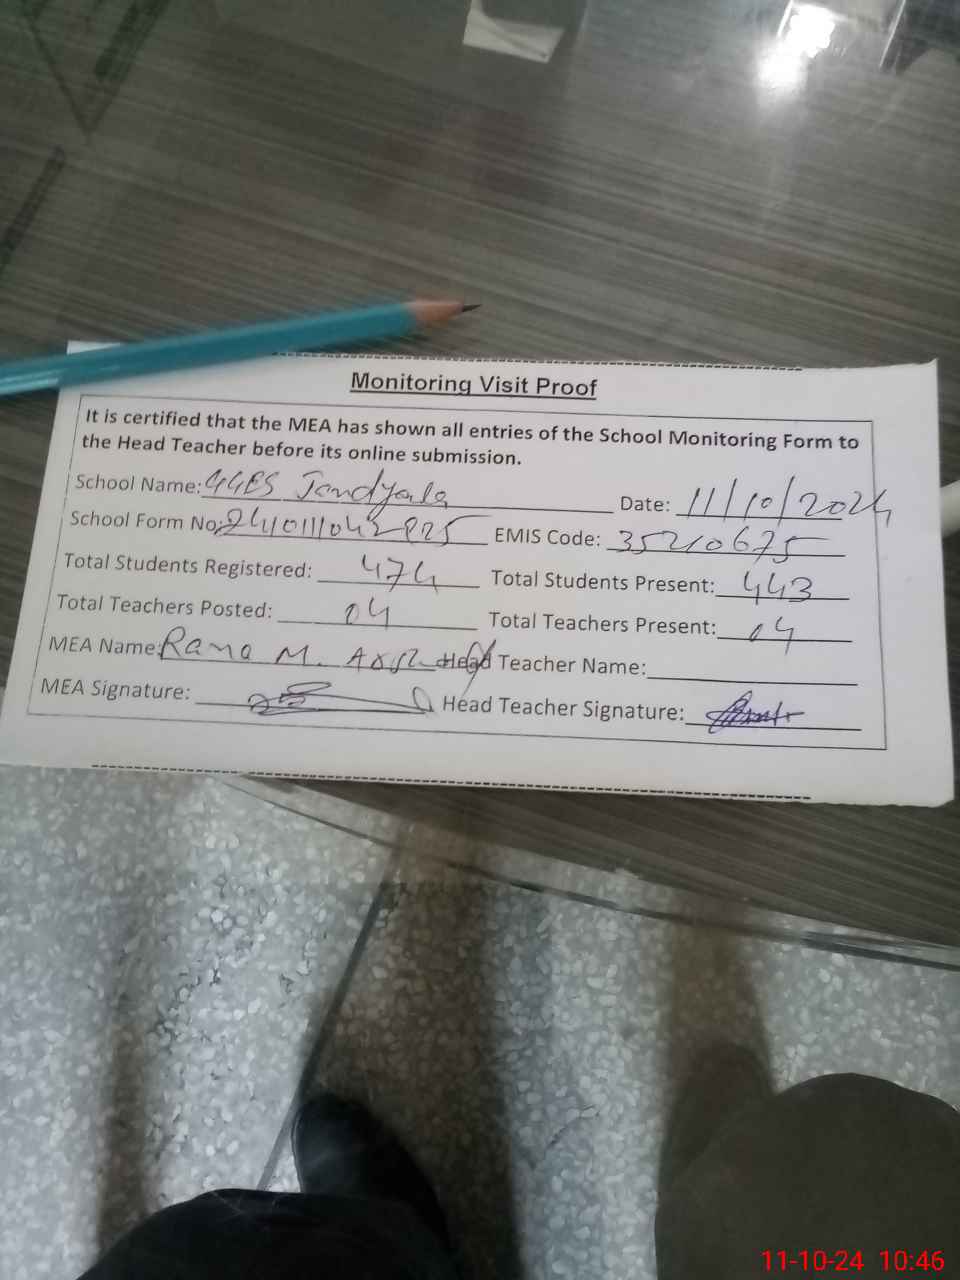 Monitoring Visit Proof
It is certified that the MEA has shown all entries of the School Monitoring Form to
the Head Teacher before its online submission.
School Name: GGES Jandyala Date: 11/10/2024
School Form No: EMIS Code: 35210675
Total Students Registered: 474 Total Students Present: 443
Total Teachers Posted: 04 Total Teachers Present: 04
MEA Name: Rana M. Arshad Head Teacher Name:
MEA Signature: Head Teacher Signature:
11-10-24 10:46